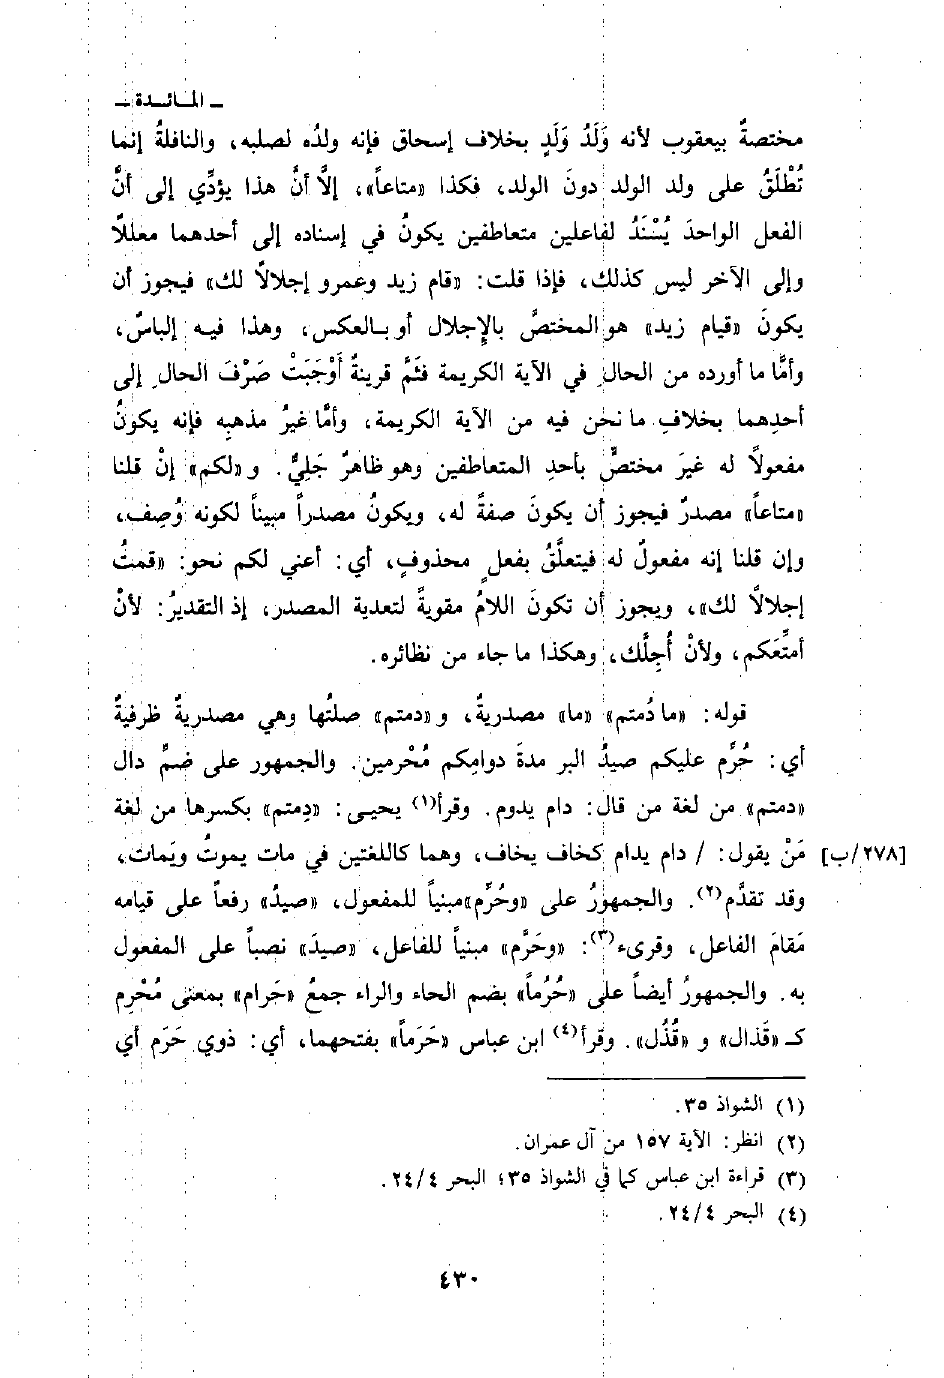 ـ المائدة ـ
مختصةٌ بيعقوب لأنه وَلَدُ وَلَدٍ بخلاف إسحاق فإنه ولدُه لصلبه، والنافلةُ إنما
تُطْلَقُ على ولد الولد دونَ الولد، فكذا «متاعاً»، إلَّا أنَّ هذا يؤدِّي إلى أنَّ
الفعل الواحدَ يُسْنَدُ لفاعلين متعاطفين يكونُ في إسناده إلى أحدهما معللاً
وإلى الآخر ليس كذلك، فإذا قلت: «قام زيد وعمرو إجلالاً لك» فيجوز أن
يكونَ «قيام زيد» هو المختصُّ بالإِجلال أو بالعكس، وهذا فيه إلباسٌ،
وأمَّا ما أورده من الحالِ في الآية الكريمة فثَمَّ قرينةٌ أَوْجَبَتْ صَرْفَ الحالِ إلى
أحدِهما بخلافِ ما نحن فيه من الآية الكريمة، وأمَّا غيرُ مذهبِه فإنه يكونُ
مفعولاً له غيرَ مختصٍّ بأحدِ المتعاطفين وهو ظاهرٌ جَلِيٌّ. و «لكم» إنْ قلنا
«متاعاً» مصدرٌ فيجوز أن يكونَ صفةً له، ويكونُ مصدراً مبيناً لكونه وُصِف،
وإن قلنا إنه مفعولٌ له فيتعلَّقُ بفعلٍ محذوفٍ، أي: أعني لكم نحو: «قمتُ
إجلالاً لك»، ويجوز أن تكونَ اللامُ مقويةً لتعدية المصدر، إذ التقديرُ: لأنْ
أمتِّعَكم، ولأنْ أُجِلَّك، وهكذا ما جاء من نظائره.
قوله: «ما دُمتم» «ما» مصدريةٌ، و «دمتم» صلتُها وهي مصدريةٌ ظرفيةٌ
أي: حُرِّم عليكم صيدُ البر مدةَ دوامِكم مُحْرمين. والجمهور على ضمِّ دال
«دمتم» من لغة من قال: دام يدوم. وقرأ(١) يحيى: «دِمتم» بكسرها من لغة
[٢٧٨/ب] مَنْ يقول: / دام يدام كخاف يخاف، وهما كاللغتين في مات يموتُ ويَمات،
وقد تقدَّم(٢). والجمهورُ على «وحُرِّم» مبنياً للمفعول، «صيدُ» رفعاً على قيامه
مَقامَ الفاعل، وقرىء(٣): «وحَرَّم» مبنياً للفاعل، «صيدَ» نصباً على المفعول
به. والجمهورُ أيضاً على «حُرُماً» بضم الحاء والراء جمعُ «حَرام» بمعنى مُحْرِم
كـ «قَذال» و «قُذُل». وقرأ(٤) ابن عباس «حَرَماً» بفتحهما، أي: ذوي حَرَم أي
(١) الشواذ ٣٥.
(٢) انظر: الآية ١٥٧ من آل عمران.
(٣) قراءة ابن عباس كما في الشواذ ٣٥؛ البحر ٢٤/٤.
(٤) البحر ٢٤/٤.
٤٣٠